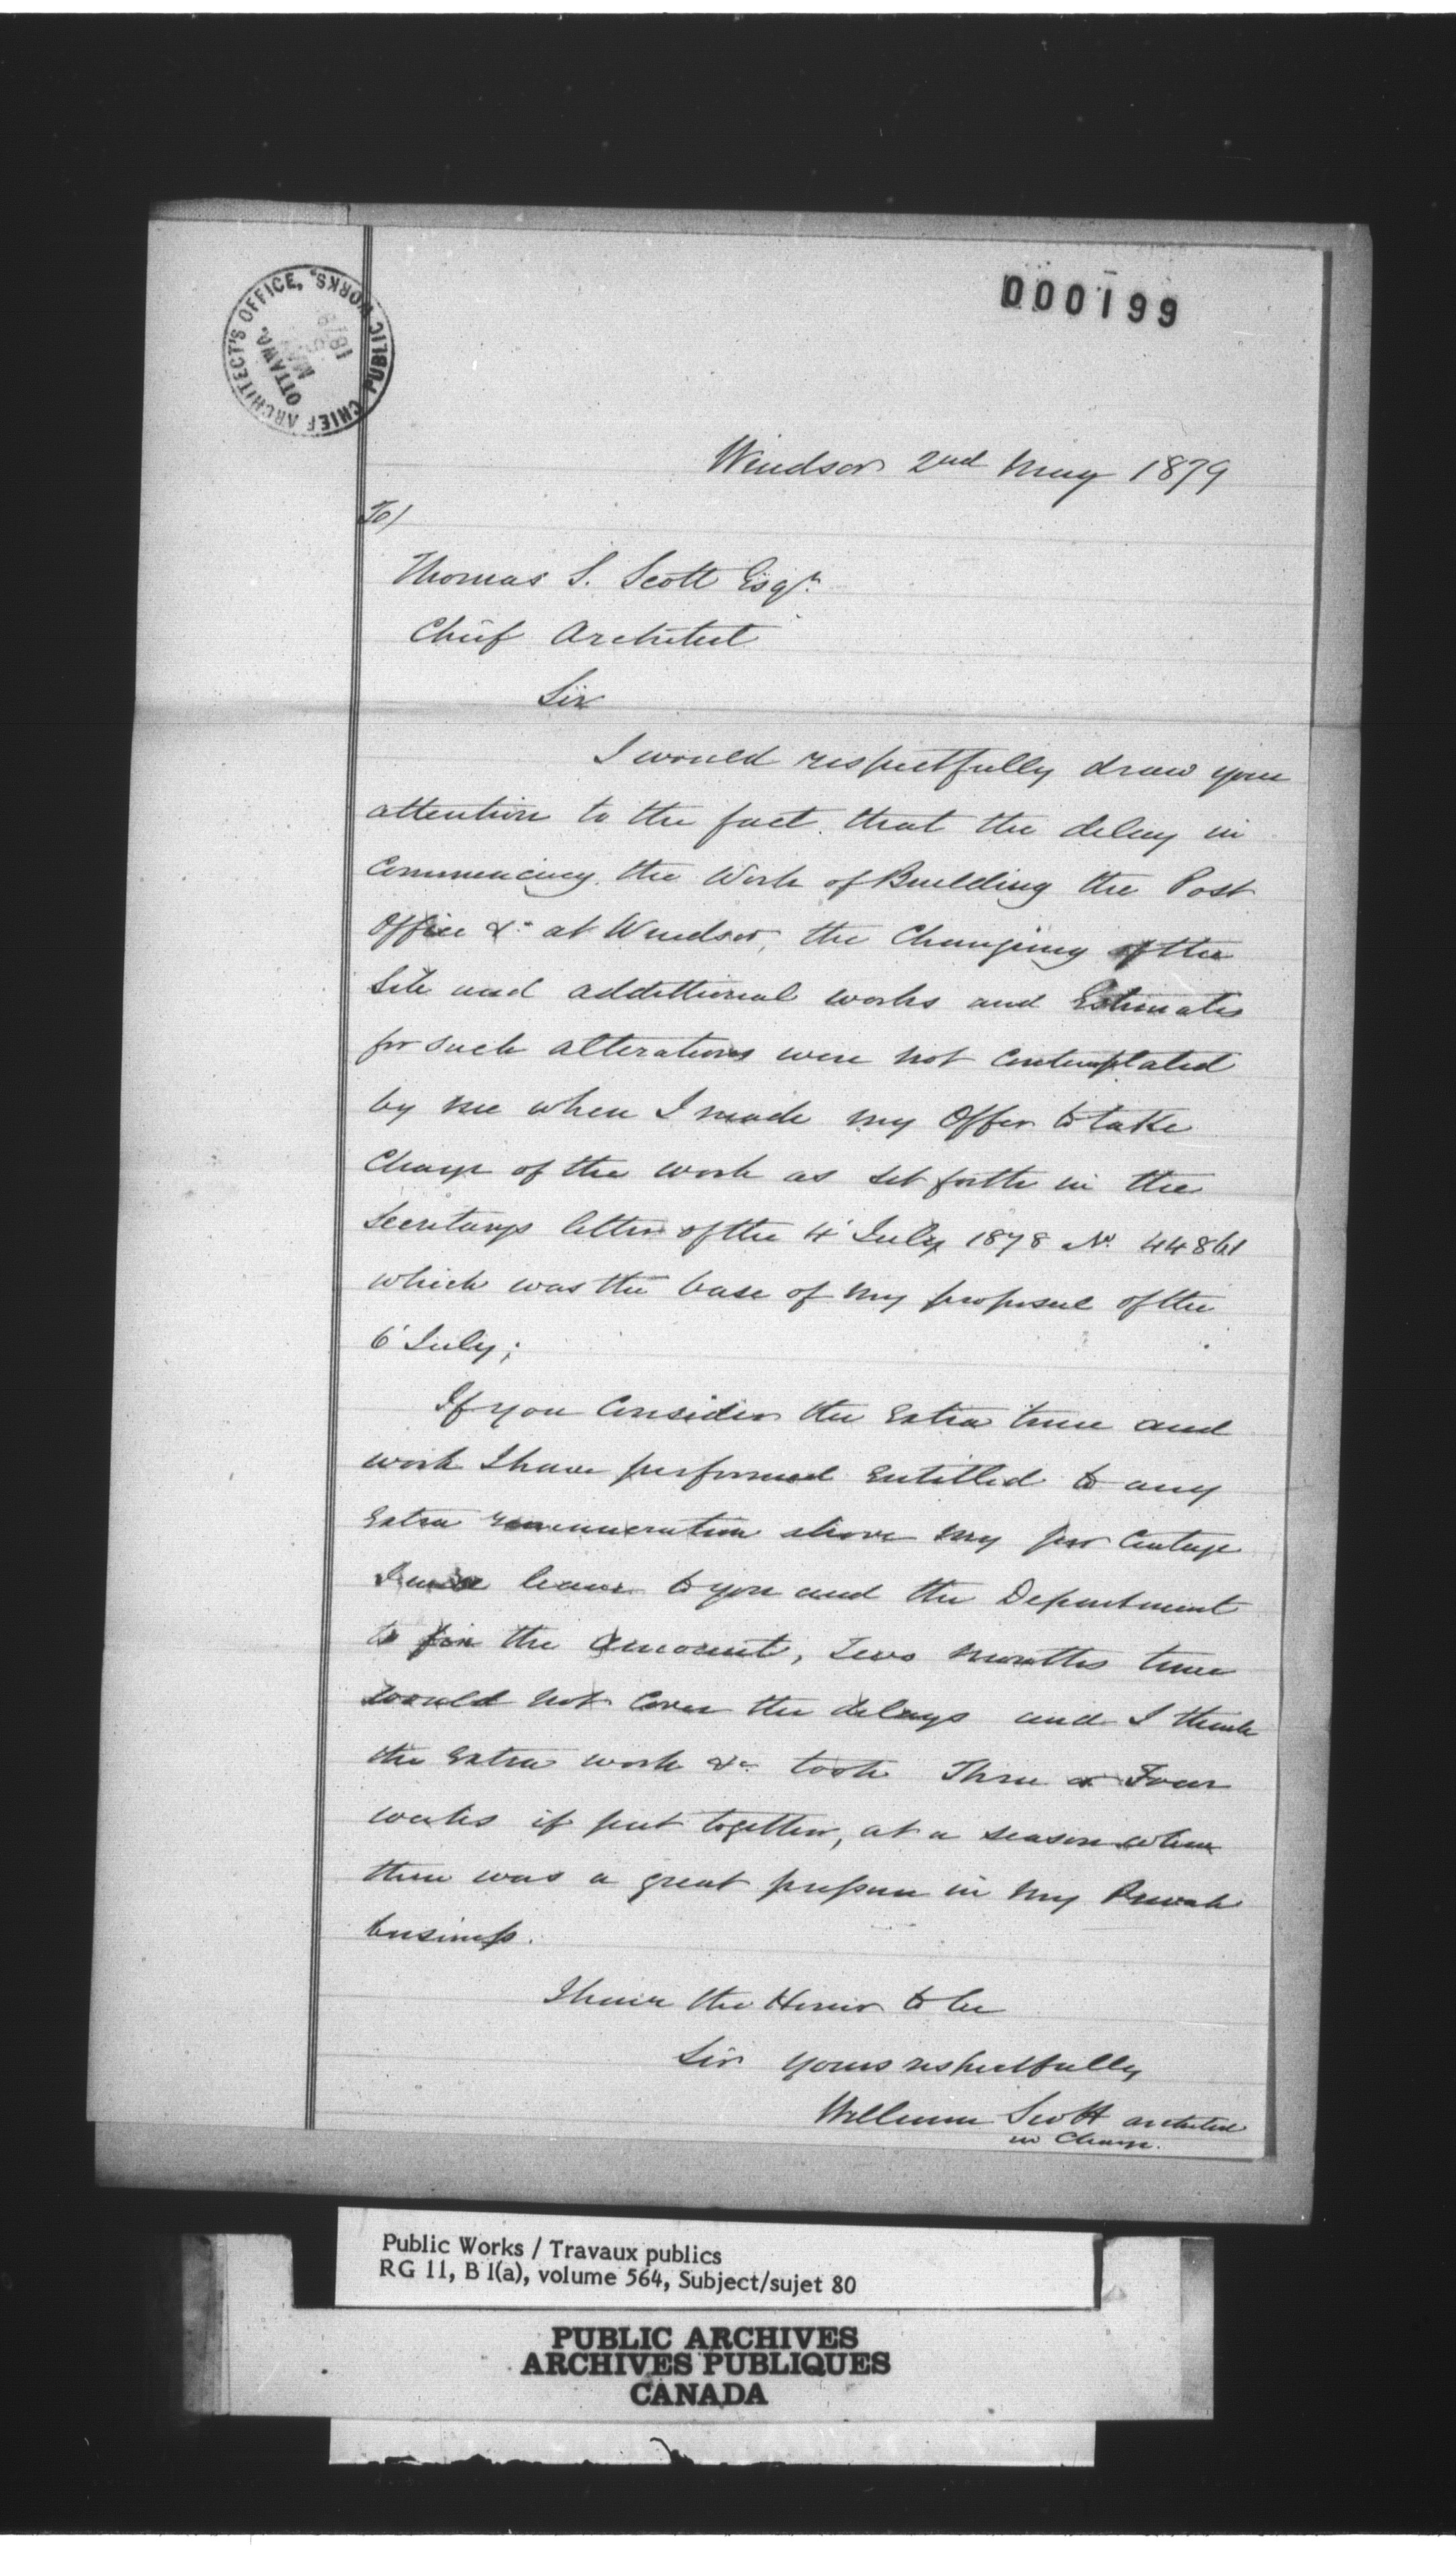 000199
CHIEF ARCHITECT'S OFFICE, PUBLIC WORKS,
OTTAWA
MAY
1879
Windsor 2nd May 1879
To/
Thomas S. Scott Esqr.
Chief Architect
Sir
I would respectfully draw your
attention to the fact that the delay in
Commencing the Work of Building the Post
Office &c at Windsor, the Changing of the
Site and addittional works and Estimates
for such alterations were not Contemplated
by me when I made my Offer to take
Charge of the work as set forth in the
Secretarys letter of the 4' July 1878 No. 44861
which was the base of my proposal of the
6' July;
If you Consider the Extra time and
work I have performed Entitled to any
Extra remuneration above my per Centage
I leave to you and the Department
to fix the Amount, Two Months time
would not Cover the delays and I think
the Extra work &c took Three or Four
weeks if put together, at a season when
there was a great pressure in my Private
business.
I have the Honor to be
Sir yours respectfully
William Scott architect
in Charge.
Public Works / Travaux publics
RG 11, B 1(a), volume 564, Subject/sujet 80
PUBLIC ARCHIVES
ARCHIVES PUBLIQUES
CANADA